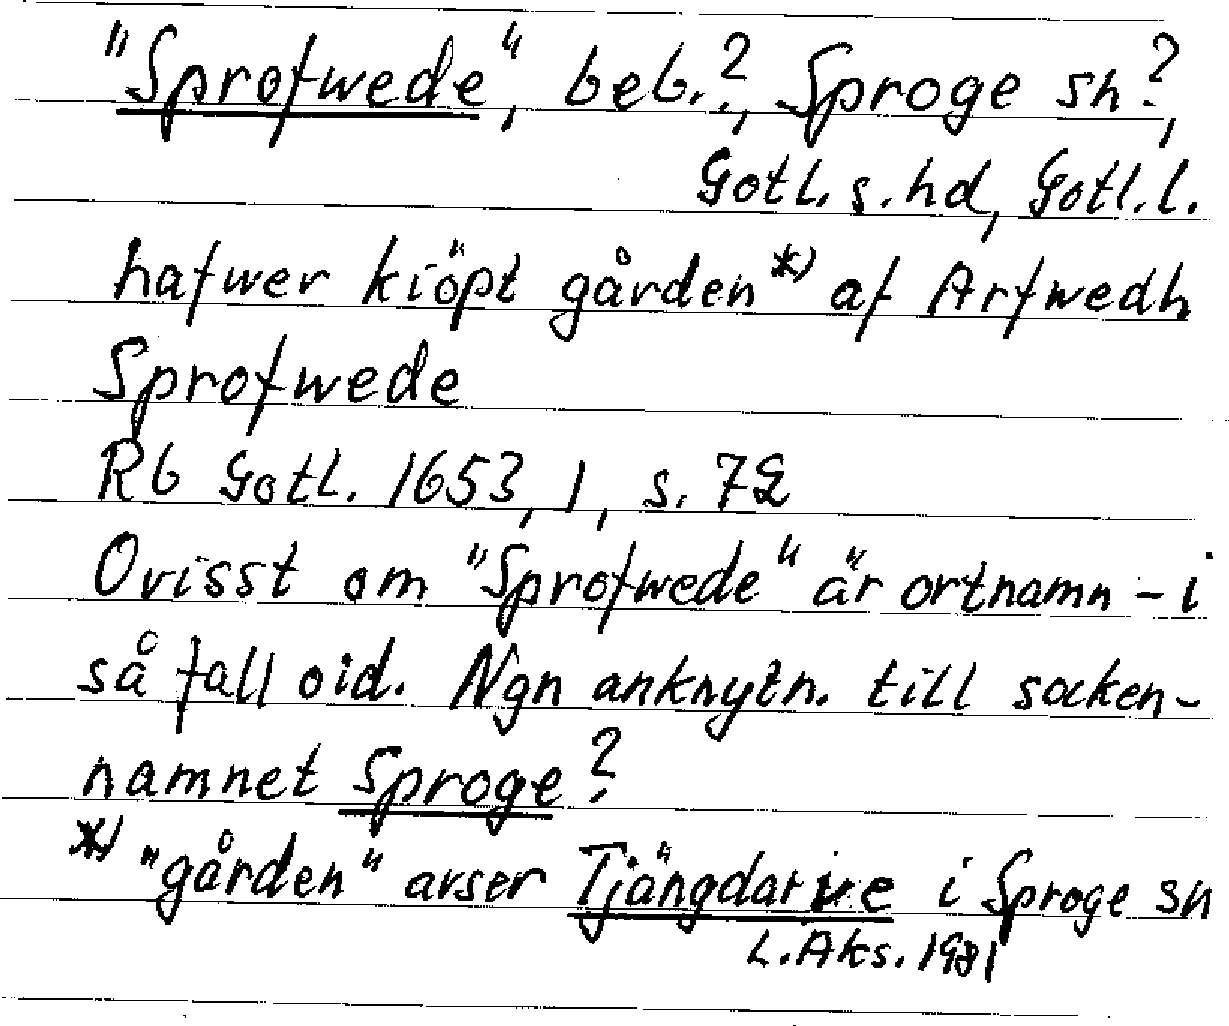 "Sprofwede", beb.?, Sproge sn?,
Gotl. s. hd, Gotl. l.
hafwer kiöpt gården *) af Arfwedh
Sprofwede
Rb Gotl. 1653, 1, s. 72
Ovisst om "Sprofwede" är ortnamn - i
så fall oid. Ngn anknytn. till socken-
namnet Sproge?
*) "gården" avser Tjängdarve i Sproge sn
L. Aks. 1981